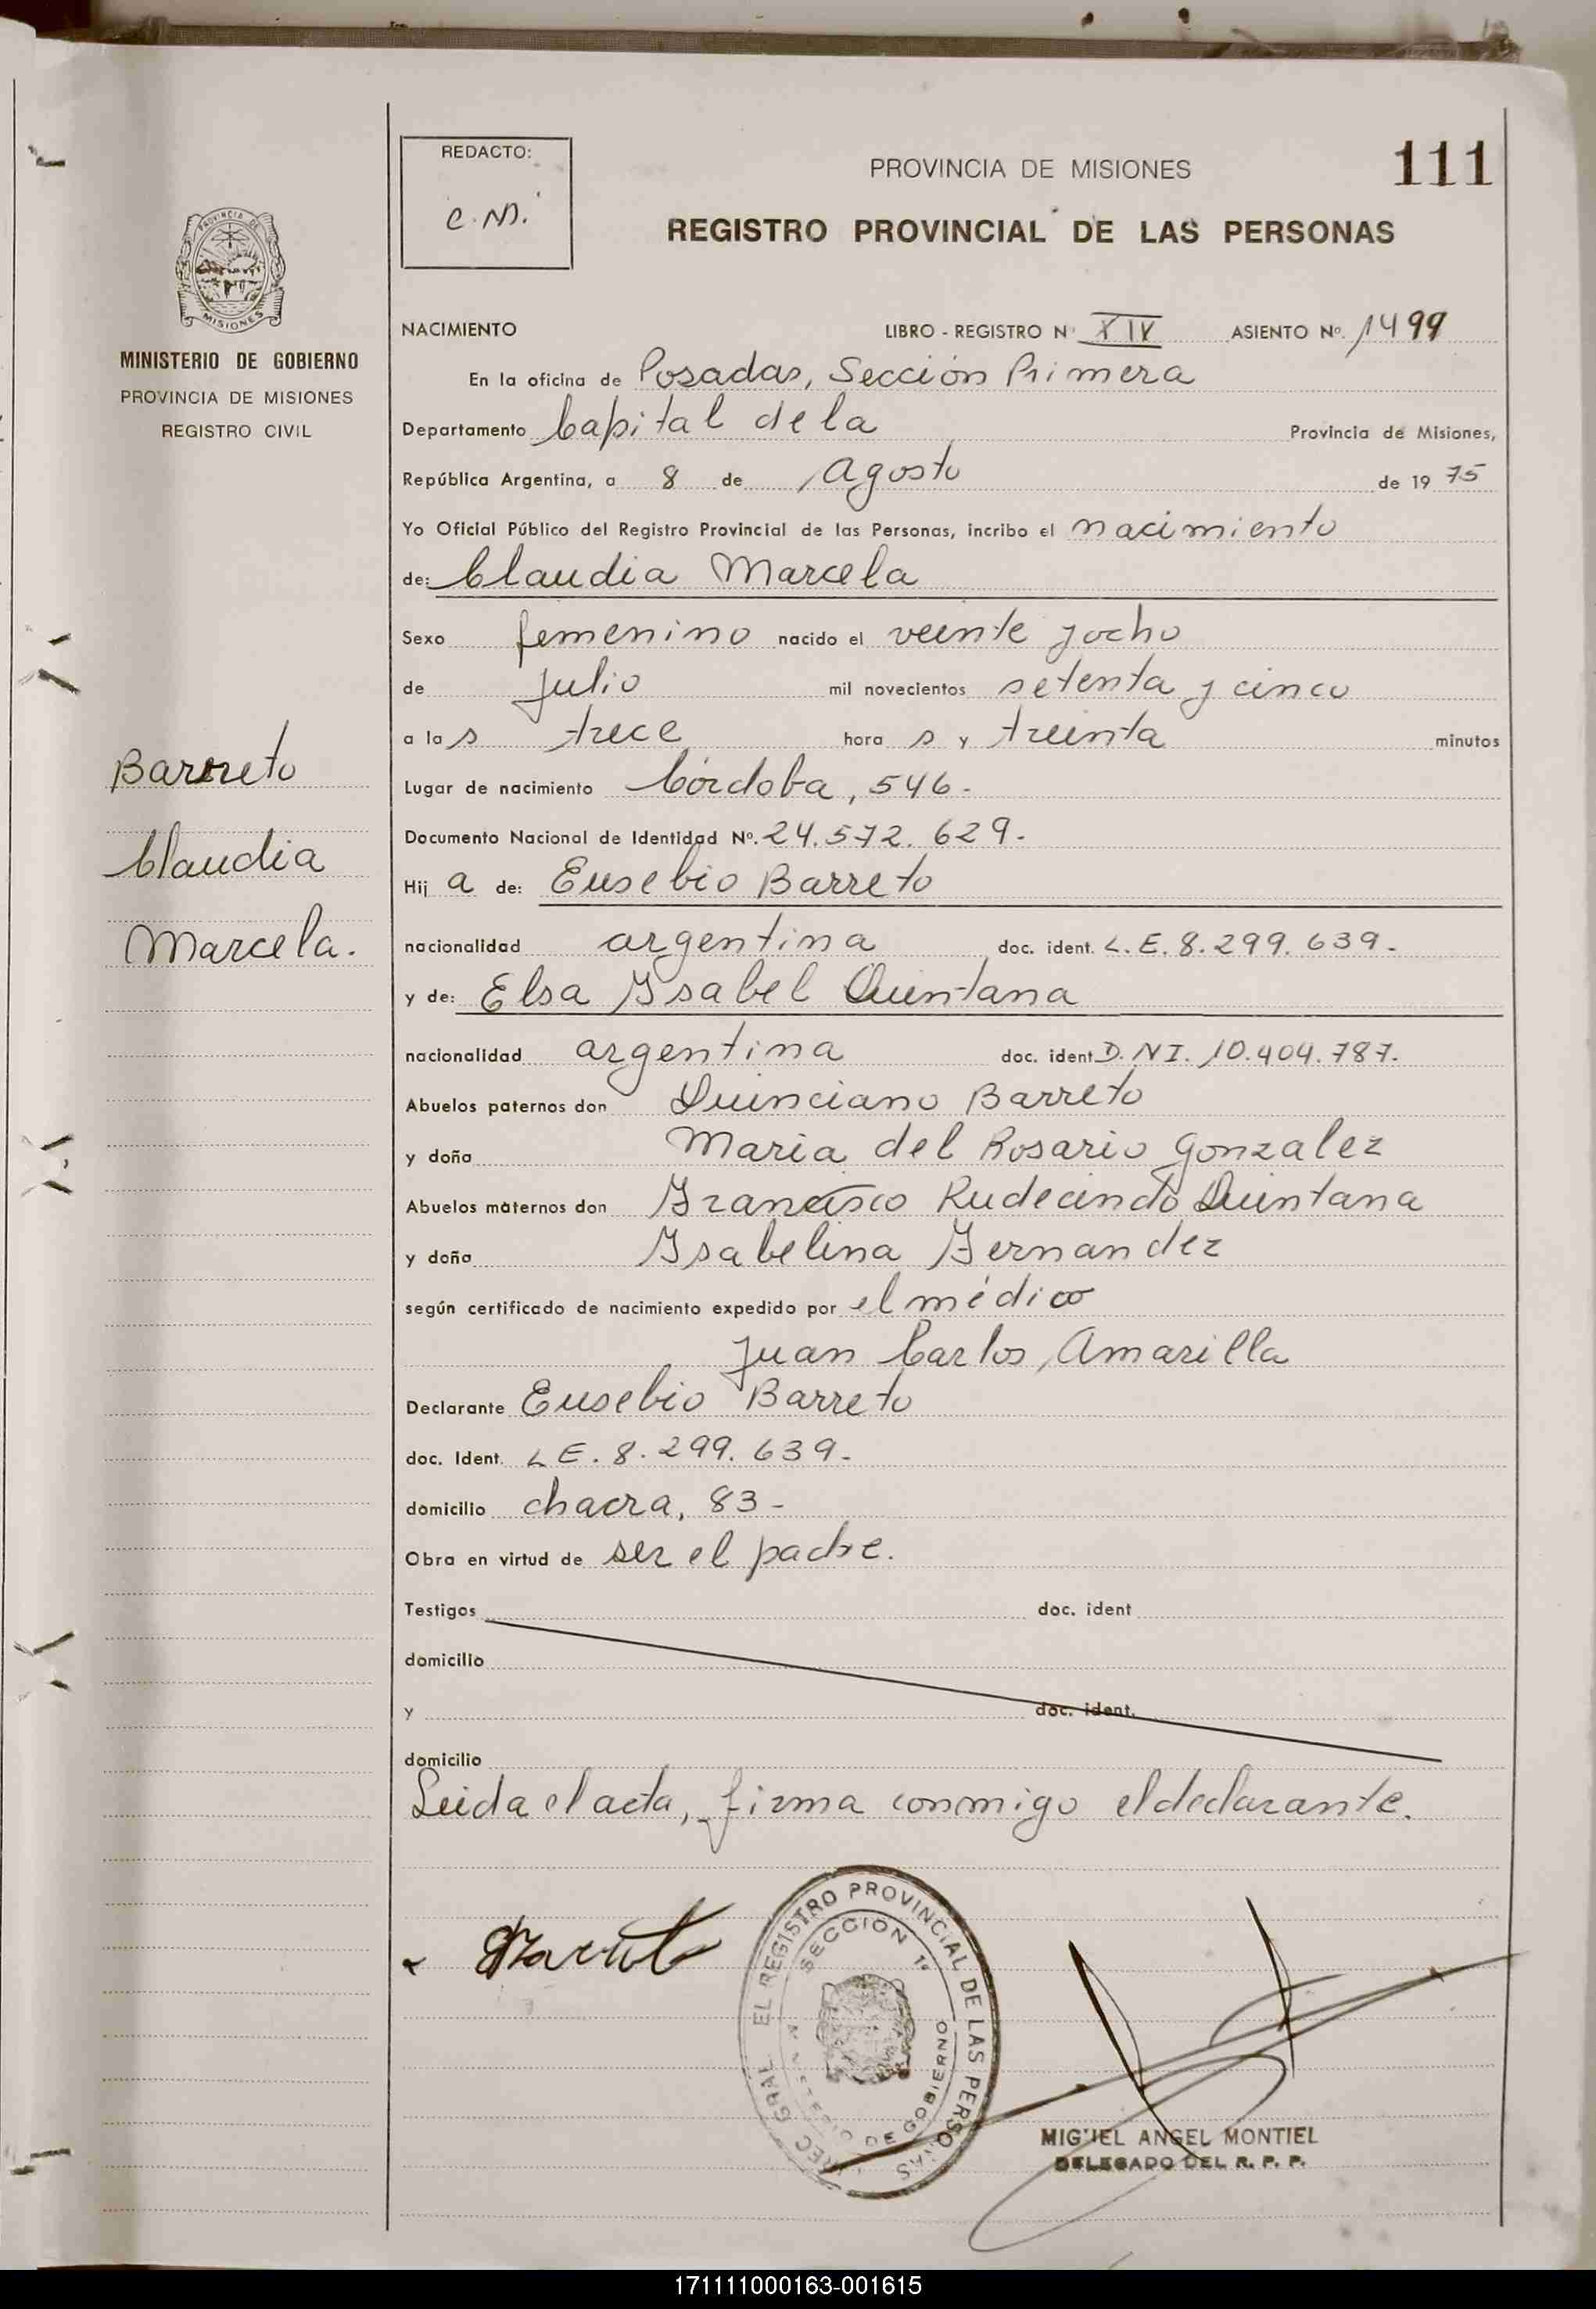 REDACTO:
C.M.
PROVINCIA DE MISIONES
111
REGISTRO PROVINCIAL DE LAS PERSONAS
PROVINCIA DE
MISIONES
MINISTERIO DE GOBIERNO
PROVINCIA DE MISIONES
REGISTRO CIVIL
Barreto
Claudia
Marcela.
NACIMIENTO LIBRO - REGISTRO Nº XIV ASIENTO Nº. 1499
En la oficina de Posadas, Sección Primera
Departamento Capital de la Provincia de Misiones,
República Argentina, a 8 de Agosto de 19 75
Yo Oficial Público del Registro Provincial de las Personas, incribo el nacimiento
de: Claudia Marcela
Sexo femenino nacido el veinte y ocho
de Julio mil novecientos setenta y cinco
a la s trece hora s y treinta minutos
Lugar de nacimiento Córdoba, 546-
Documento Nacional de Identidad Nº. 24.572.629-
Hij a de: Eusebio Barreto
nacionalidad argentina doc. ident. L.E. 8.299.639-
y de: Elsa Ysabel Quintana
nacionalidad argentina doc. ident D.N.I. 10.404.787.
Abuelos paternos don Quinciano Barreto
y doña Maria del Rosario Gonzalez
Abuelos maternos don Francisco Rudecindo Quintana
y doña Ysabelina Fernandez
según certificado de nacimiento expedido por el médico
Juan Carlos Amarilla
Declarante Eusebio Barreto
doc. Ident. L E. 8.299.639-
domicilio chacra, 83-
Obra en virtud de ser el padre.
Testigos doc. ident
domicilio
y doc. ident.
domicilio
Leida el acta, firma conmigo el declarante.
EL REGISTRO PROVINCIAL DE LAS PERSONAS
SECCION 1ª
MINISTERIO DE GOBIERNO
MIGUEL ANGEL MONTIEL
DELEGADO DEL R. P. P.
171111000163-001615